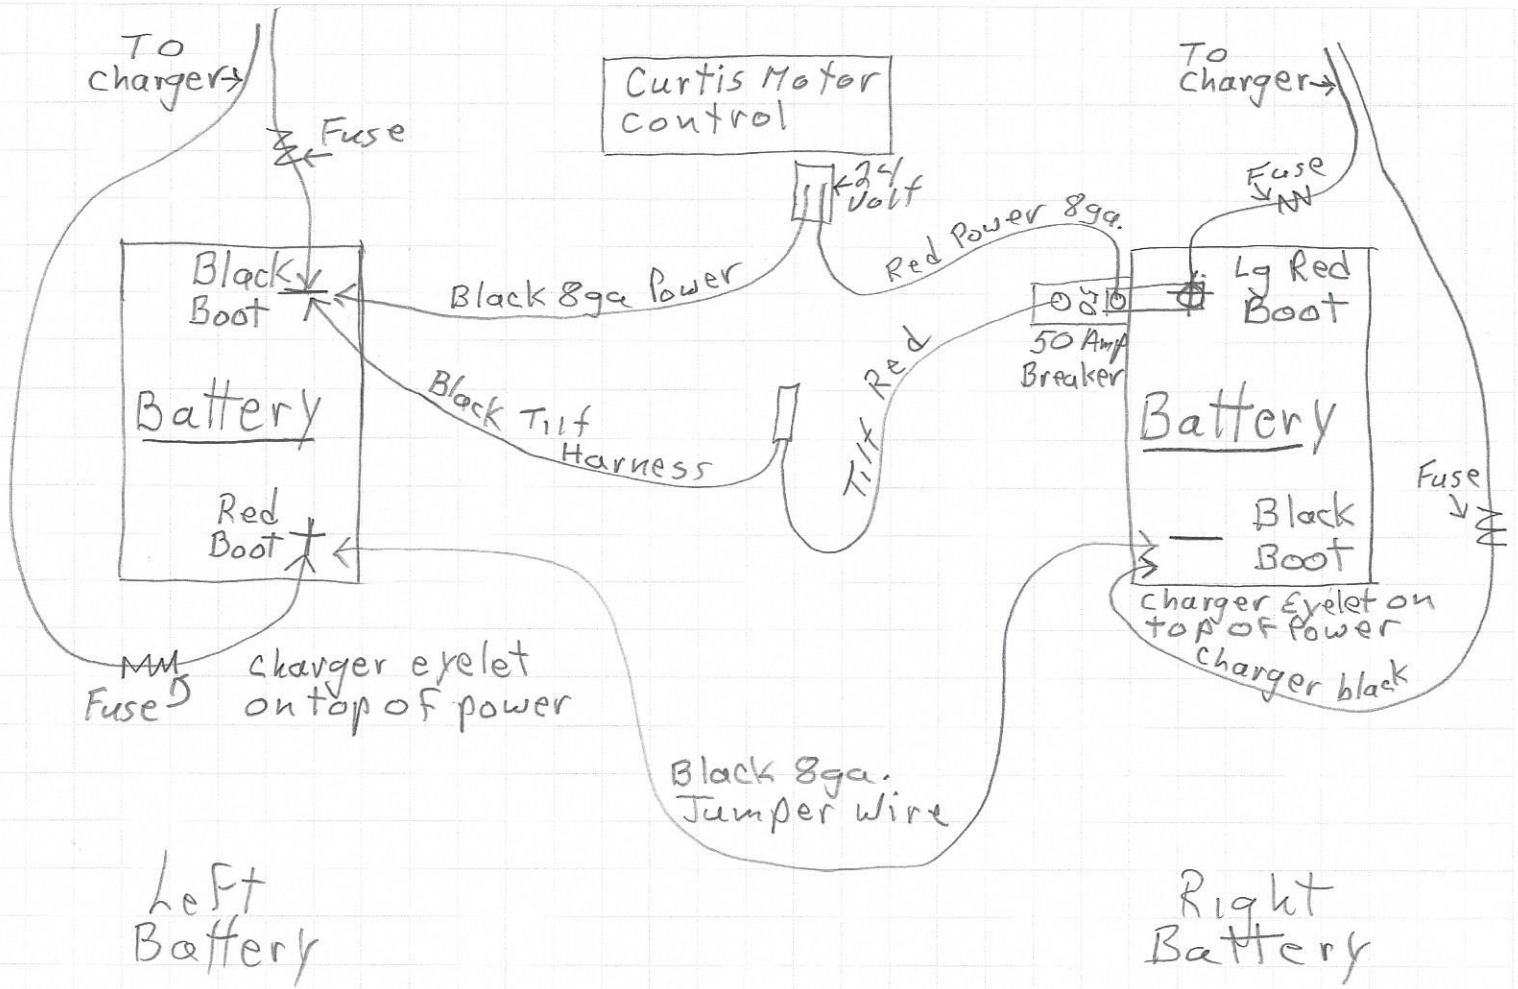 To
charger
Fuse
Curtis Motor
control
24
Volt
To
charger
Fuse
Black
Boot
Black 8ga Power
Red Power 8ga.
Lg Red
Boot
50 Amp
Breaker
Battery
Black Tilt
Harness
Tilt Red
Battery
Fuse
Red
Boot
Black
Boot
Charger Eyelet on
top of Power
Charger black
Fuse
charger eyelet
on top of power
Black 8ga.
Jumper wire
Left
Battery
Right
Battery